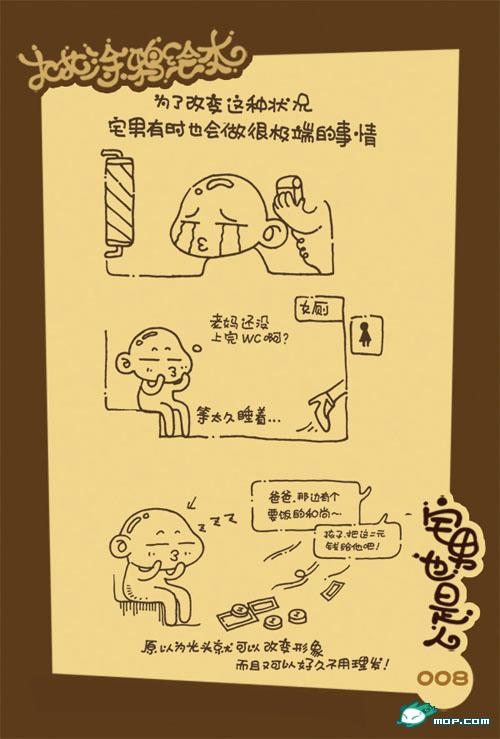 为了改变这种状况
宅男有时也会做很极端的事情
女厕
老妈还没
上完WC啊?
等太久睡着...
zzz
爸爸,那边有个
要饭的和尚~
孩子,把这二元
钱给他吧!
原以为光头就可以改变形象
而且又可以好久不用理发!
宅男也是人
008
MOP.COM